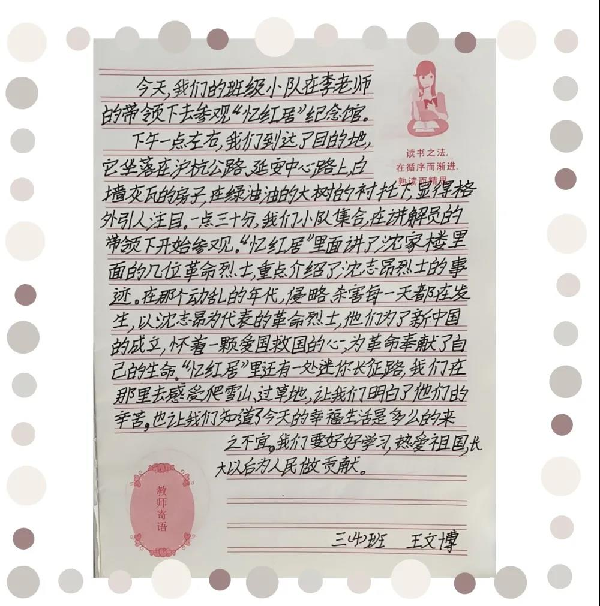 今天,我们的班级小队在李老师
的带领下去参观“忆红居”纪念馆。
下午一点左右,我们到达了目的地,
它坐落在沪杭公路、延安中心路上,白
墙灰瓦的房子,在绿油油的大树的衬托下,显得格
外引人注目。一点三十分,我们小队集合,在讲解员的
带领下开始参观。“忆红居”里面讲了沈家楼里
面的几位革命烈士,重点介绍了沈志昂烈士的事
迹。在那个动乱的年代,侵略、杀害每一天都在发
生,以沈志昂为代表的革命烈士,他们为了新中国
的成立,怀着一颗爱国救国的心,为革命奉献了自
己的生命。“忆红居”里还有一处迷你长征路,我们在
那里去感受爬雪山、过草地,让我们明白了他们的
辛苦。也让我们知道了今天的幸福生活是多么的来
之不宜。我们要好好学习,热爱祖国,长
大以后为人民做贡献。
三(4)班 王文博
读书之法,
在循序而渐进,
熟读而精思
教师寄语